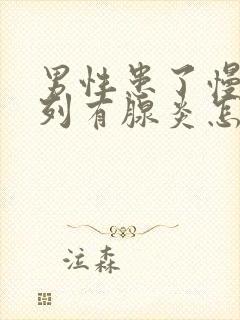 男性患了慢
列有腺炎怎
泣森